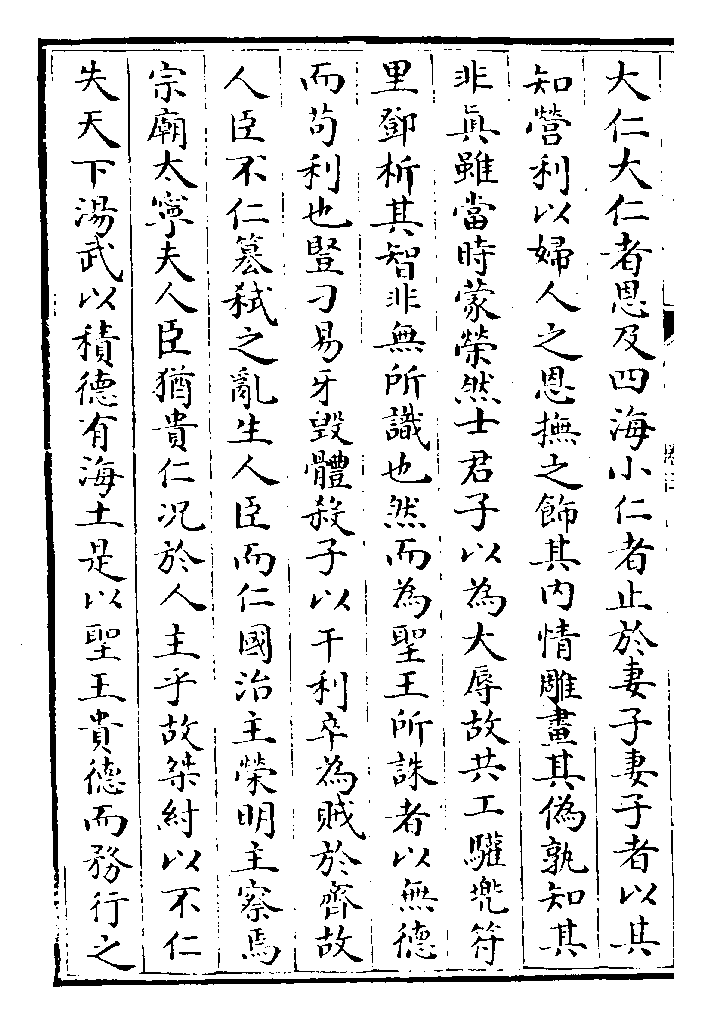 大仁大仁者恩及四海小仁者止於妻子妻子者以其
知營利以婦人之恩撫之飾其内情雕畫其偽孰知其
非眞雖當時蒙榮然士君子以為大辱故共工驩兠符
里鄧析其智非無所識也然而為聖王所誅者以無德
而茍利也豎刁易牙毀體殺子以干利卒為賊於齊故
人臣不仁簒弑之亂生人臣而仁國治主榮明主察焉
宗廟太寧夫人臣猶貴仁况於人主乎故桀紂以不仁
失天下湯武以積德有海土是以聖王貴德而務行之